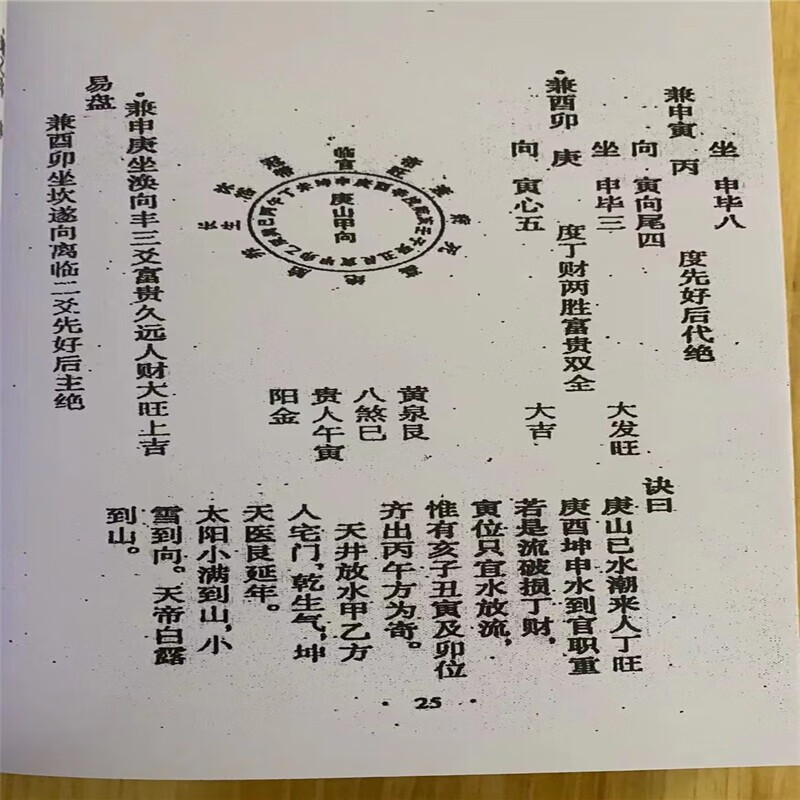 坐 申毕八
兼申寅 丙 度先好后代绝
向 寅向尾四
坐 申毕三 大发旺
·兼酉卯 庚 度丁财两胜富贵双全
向 寅心五 大吉
临官
冠带
沐浴
长生
养
胎
绝
墓
死
丙午丁未坤申庚酉辛戌乾亥壬子癸丑艮寅甲卯乙辰巽巳
庚山甲向
黄泉艮
八煞巳
贵人午寅
阳金
易盘
·兼申庚坐涣向丰三爻富贵久远人财大旺上吉
兼酉卯坐坎遂向离临二爻先好后主绝
诀曰
庚山巳水潮来人丁旺
庚酉坤申水到官职重
若是流破损丁财，
寅位只宜水放流，
惟有亥子丑寅及卯位
齐出丙午方为奇。
天井放水甲乙方
人宅门，乾生气，坤
天医艮延年。
太阳小满到山，小
雪到向。天帝白露
到山。
·25·